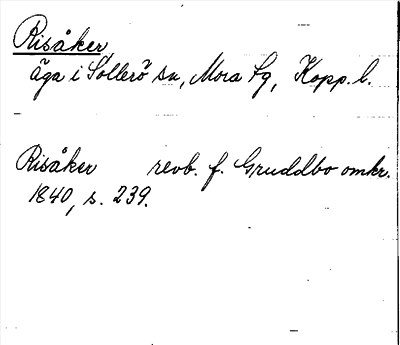 Risåker,
äga i Sollerö sn, Mora tg, Kopp. l.
Risåker revb. f. Gruddbo omkr.
1840, s. 239.